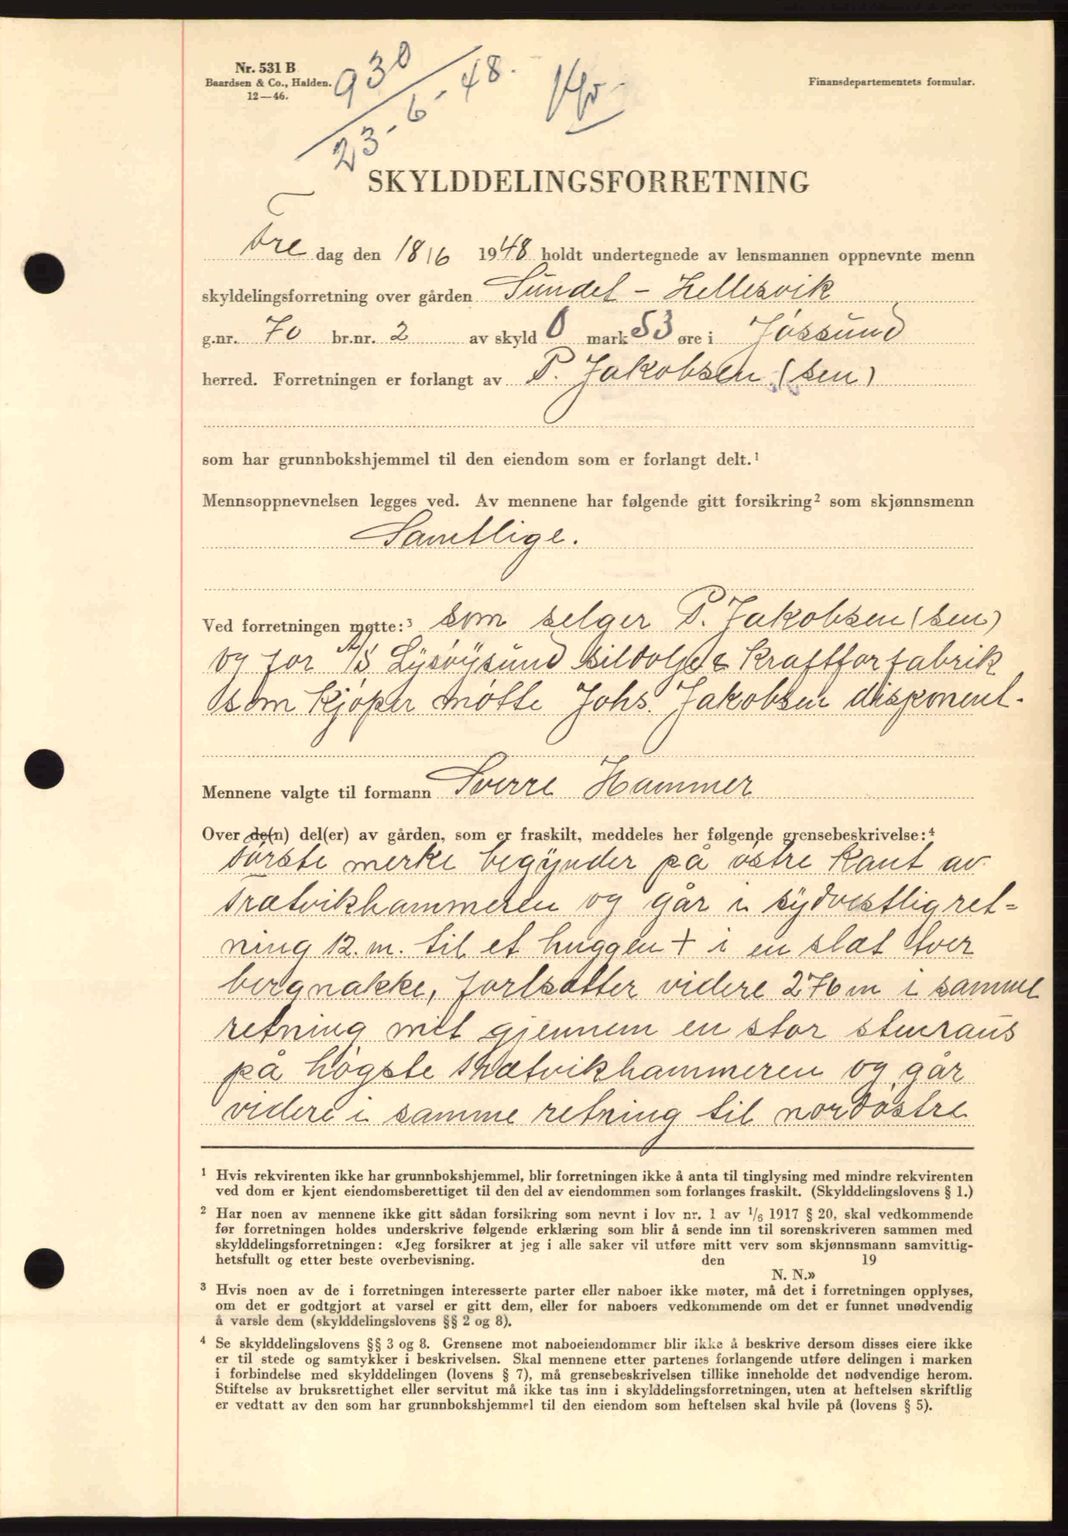 Nr. 531 B
Baardsen & Co., Halden.
12—46.
930
23-6-48.
Finansdepartementets formular.
SKYLDDELINGSFORRETNING
Fre dag den 18/6 1948 holdt undertegnede av lensmannen oppnevnte menn
skyldelingsforretning over gården Sundet - Hellesvik
g.nr. 70 br.nr. 2 av skyld 0 mark 53 øre i Jøssund
herred. Forretningen er forlangt av P. Jakobsen (sen)
som har grunnbokshjemmel til den eiendom som er forlangt delt.¹
Mennsoppnevnelsen legges ved. Av mennene har følgende gitt forsikring² som skjønnsmenn
Samtlige.
Ved forretningen møtte:³ som selger P. Jakobsen (sen)
og for A/S Lysøysund sildolje & Kraftforfabrik
som kjøper møtte Johs. Jakobsen disponent.
Mennene valgte til formann Sverre Hammer
Over de(n) del(er) av gården, som er fraskilt, meddeles her følgende grensebeskrivelse:⁴
første merke begynder på østre kant av
Trætvikhammeren og går i sydvestlig ret=
ning 12. m. til et huggen + i en slæt tver
bergnakke, fortsætter videre 276 m i samme
retning mit gjennem en stor stenraus
på høgste Trætvikhammeren og går
videre i samme retning til nordøstre
¹ Hvis rekvirenten ikke har grunnbokshjemmel, blir forretningen ikke å anta til tinglysing med mindre rekvirenten
ved dom er kjent eiendomsberettiget til den del av eiendommen som forlanges fraskilt. (Skylddelingslovens § 1.)
² Har noen av mennene ikke gitt sådan forsikring som nevnt i lov nr. 1 av 1/6 1917 § 20, skal vedkommende
før forretningen holdes underskrive følgende erklæring som blir å sende inn til sorenskriveren sammen med
skylddelingsforretningen: «Jeg forsikrer at jeg i alle saker vil utføre mitt verv som skjønnsmann samvittig-
hetsfullt og etter beste overbevisning. den 19
N. N.»
³ Hvis noen av de i forretningen interesserte parter eller naboer ikke møter, må det i forretningen opplyses,
om det er godtgjort at varsel er gitt dem, eller for naboers vedkommende om det er funnet unødvendig
å varsle dem (skylddelingslovens §§ 2 og 8).
⁴ Se skylddelingslovens §§ 3 og 8. Grensene mot naboeiendommer blir ikke å beskrive dersom disses eiere ikke
er til stede og samtykker i beskrivelsen. Skal mennene etter partenes forlangende utføre delingen i marken
i forbindelse med skylddelingen (lovens § 7), må grensebeskrivelsen tillike inneholde det nødvendige herom.
Stiftelse av bruksrettighet eller servitut må ikke tas inn i skylddelingsforretningen, uten at heftelsen skriftlig
er vedtatt av den som har grunnbokshjemmel til den eiendom som heftelsen skal hvile på (lovens § 5).